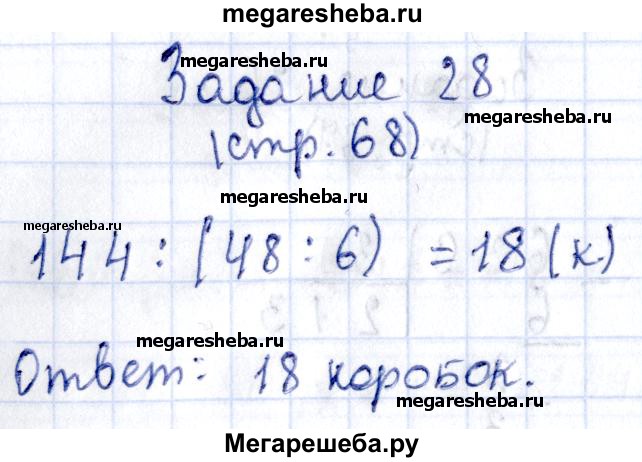 megaresheba.ru
megaresheba.ru
Задание 28
megaresheba.ru
(стр. 68)
megaresheba.ru
megaresheba.ru
144 : (48 : 6) = 18 (к.)
megaresheba.ru
megaresheba.ru
Ответ: 18 коробок.
megaresheba.ru
Мегарешеба.ру